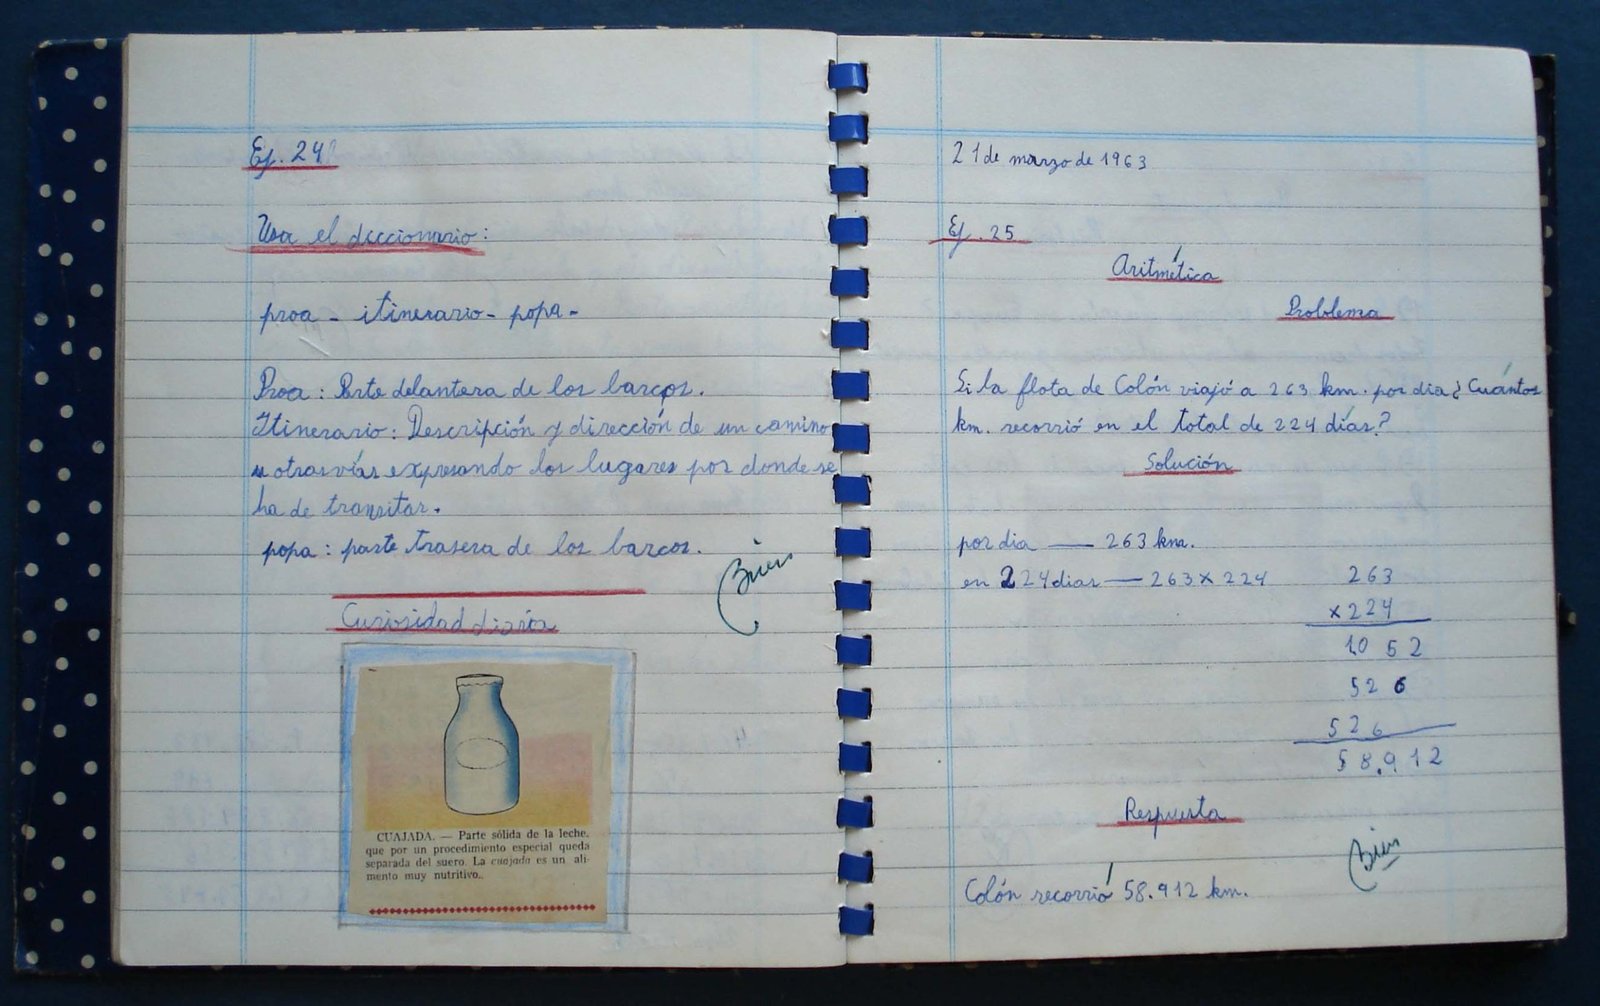 Ej. 24
Usa el diccionario:
proa - itinerario - popa -
Proa: Parte delantera de los barcos.
Itinerario: Descripción y dirección de un camino
u otras vías expresando los lugares por donde se
ha de transitar.
popa: parte trasera de los barcos.
Bien
Curiosidad diaria
CUAJADA. — Parte sólida de la leche,
que por un procedimiento especial queda
separada del suero. La cuajada es un ali-
mento muy nutritivo..
21 de marzo de 1963
Ej. 25
Aritmética
Problema
Si la flota de Colón viajó a 263 km. por dia ¿Cuántos
km. recorrió en el total de 224 días?
Solución
por dia — 263 km.
en 224 dias — 263 x 224
263
x224
10 52
526
526
58.912
Respuesta
Bien
Colón recorrió 58.912 km.